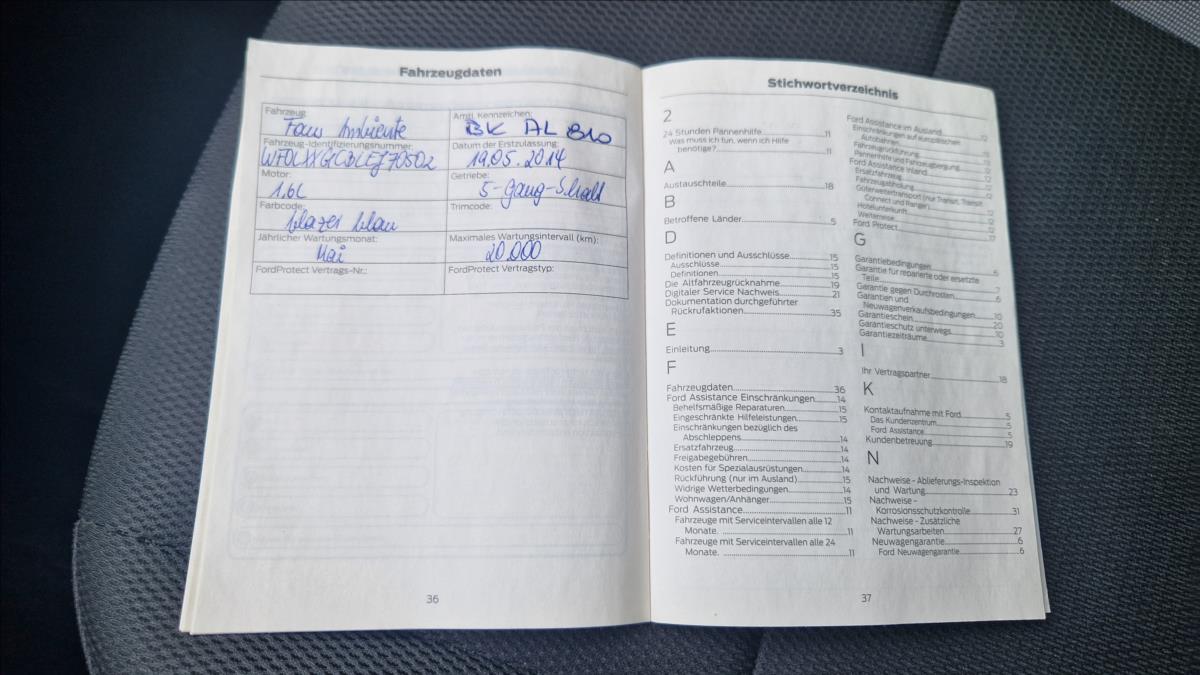 Fahrzeugdaten
Fahrzeug:
Focus Ambiente
Amtl. Kennzeichen:
BK AL 810
Fahrzeug-Identifizierungsnummer:
Datum der Erstzulassung:
19.05.2014
Motor:
1,6L
Getriebe:
5-Gang-Schalt
Farbcode:
blazer blau
Trimcode:
Jährlicher Wartungsmonat:
Mai
Maximales Wartungsintervall (km):
20.000
FordProtect Vertrags-Nr.:
FordProtect Vertragstyp:
36
Stichwortverzeichnis
2
24 Stunden Pannenhilfe 11
Was muss ich tun, wenn ich Hilfe
benötige? 11
A
Austauschteile 18
B
Betroffene Länder 5
D
Definitionen und Ausschlüsse 15
Ausschlüsse 15
Definitionen 15
Die Altfahrzeugrücknahme 19
Digitaler Service Nachweis 21
Dokumentation durchgeführter
Rückrufaktionen 35
E
Einleitung 3
F
Fahrzeugdaten 36
Ford Assistance Einschränkungen 14
Behelfsmäßige Reparaturen 15
Eingeschränkte Hilfeleistungen 15
Einschränkungen bezüglich des
Abschleppens 14
Ersatzfahrzeug 14
Freigabegebühren 14
Kosten für Spezialausrüstungen 14
Rückführung (nur im Ausland) 15
Widrige Wetterbedingungen 14
Wohnwagen/Anhänger 15
Ford Assistance 11
Fahrzeuge mit Serviceintervallen alle 12
Monate. 11
Fahrzeuge mit Serviceintervallen alle 24
Monate. 11
Ford Assistance im Ausland
Einschränkungen auf europäischen
Autobahnen
Fahrzeugrückführung
Pannenhilfe und Fahrzeugbergung
Ford Assistance Inland
Ersatzfahrzeug 12
Fahrzeugabholung 12
Güterweitertransport (nur Transit, Transit
Connect und Ranger) 12
Hotelunterkunft 12
Weiterreise 12
Ford Protect 17
G
Garantiebedingungen 6
Garantie für reparierte oder ersetzte
Teile 7
Garantie gegen Durchrosten 6
Garantien und
Neuwagenverkaufsbedingungen 10
Garantieschein 20
Garantieschutz unterwegs 10
Garantiezeiträume 3
I
Ihr Vertragspartner 18
K
Kontaktaufnahme mit Ford 5
Das Kundenzentrum 5
Ford Assistance 5
Kundenbetreuung 19
N
Nachweise - Ablieferungs-Inspektion
und Wartung 23
Nachweise -
Korrosionsschutzkontrolle 31
Nachweise - Zusätzliche
Wartungsarbeiten 27
Neuwagengarantie 6
Ford Neuwagengarantie 6
37